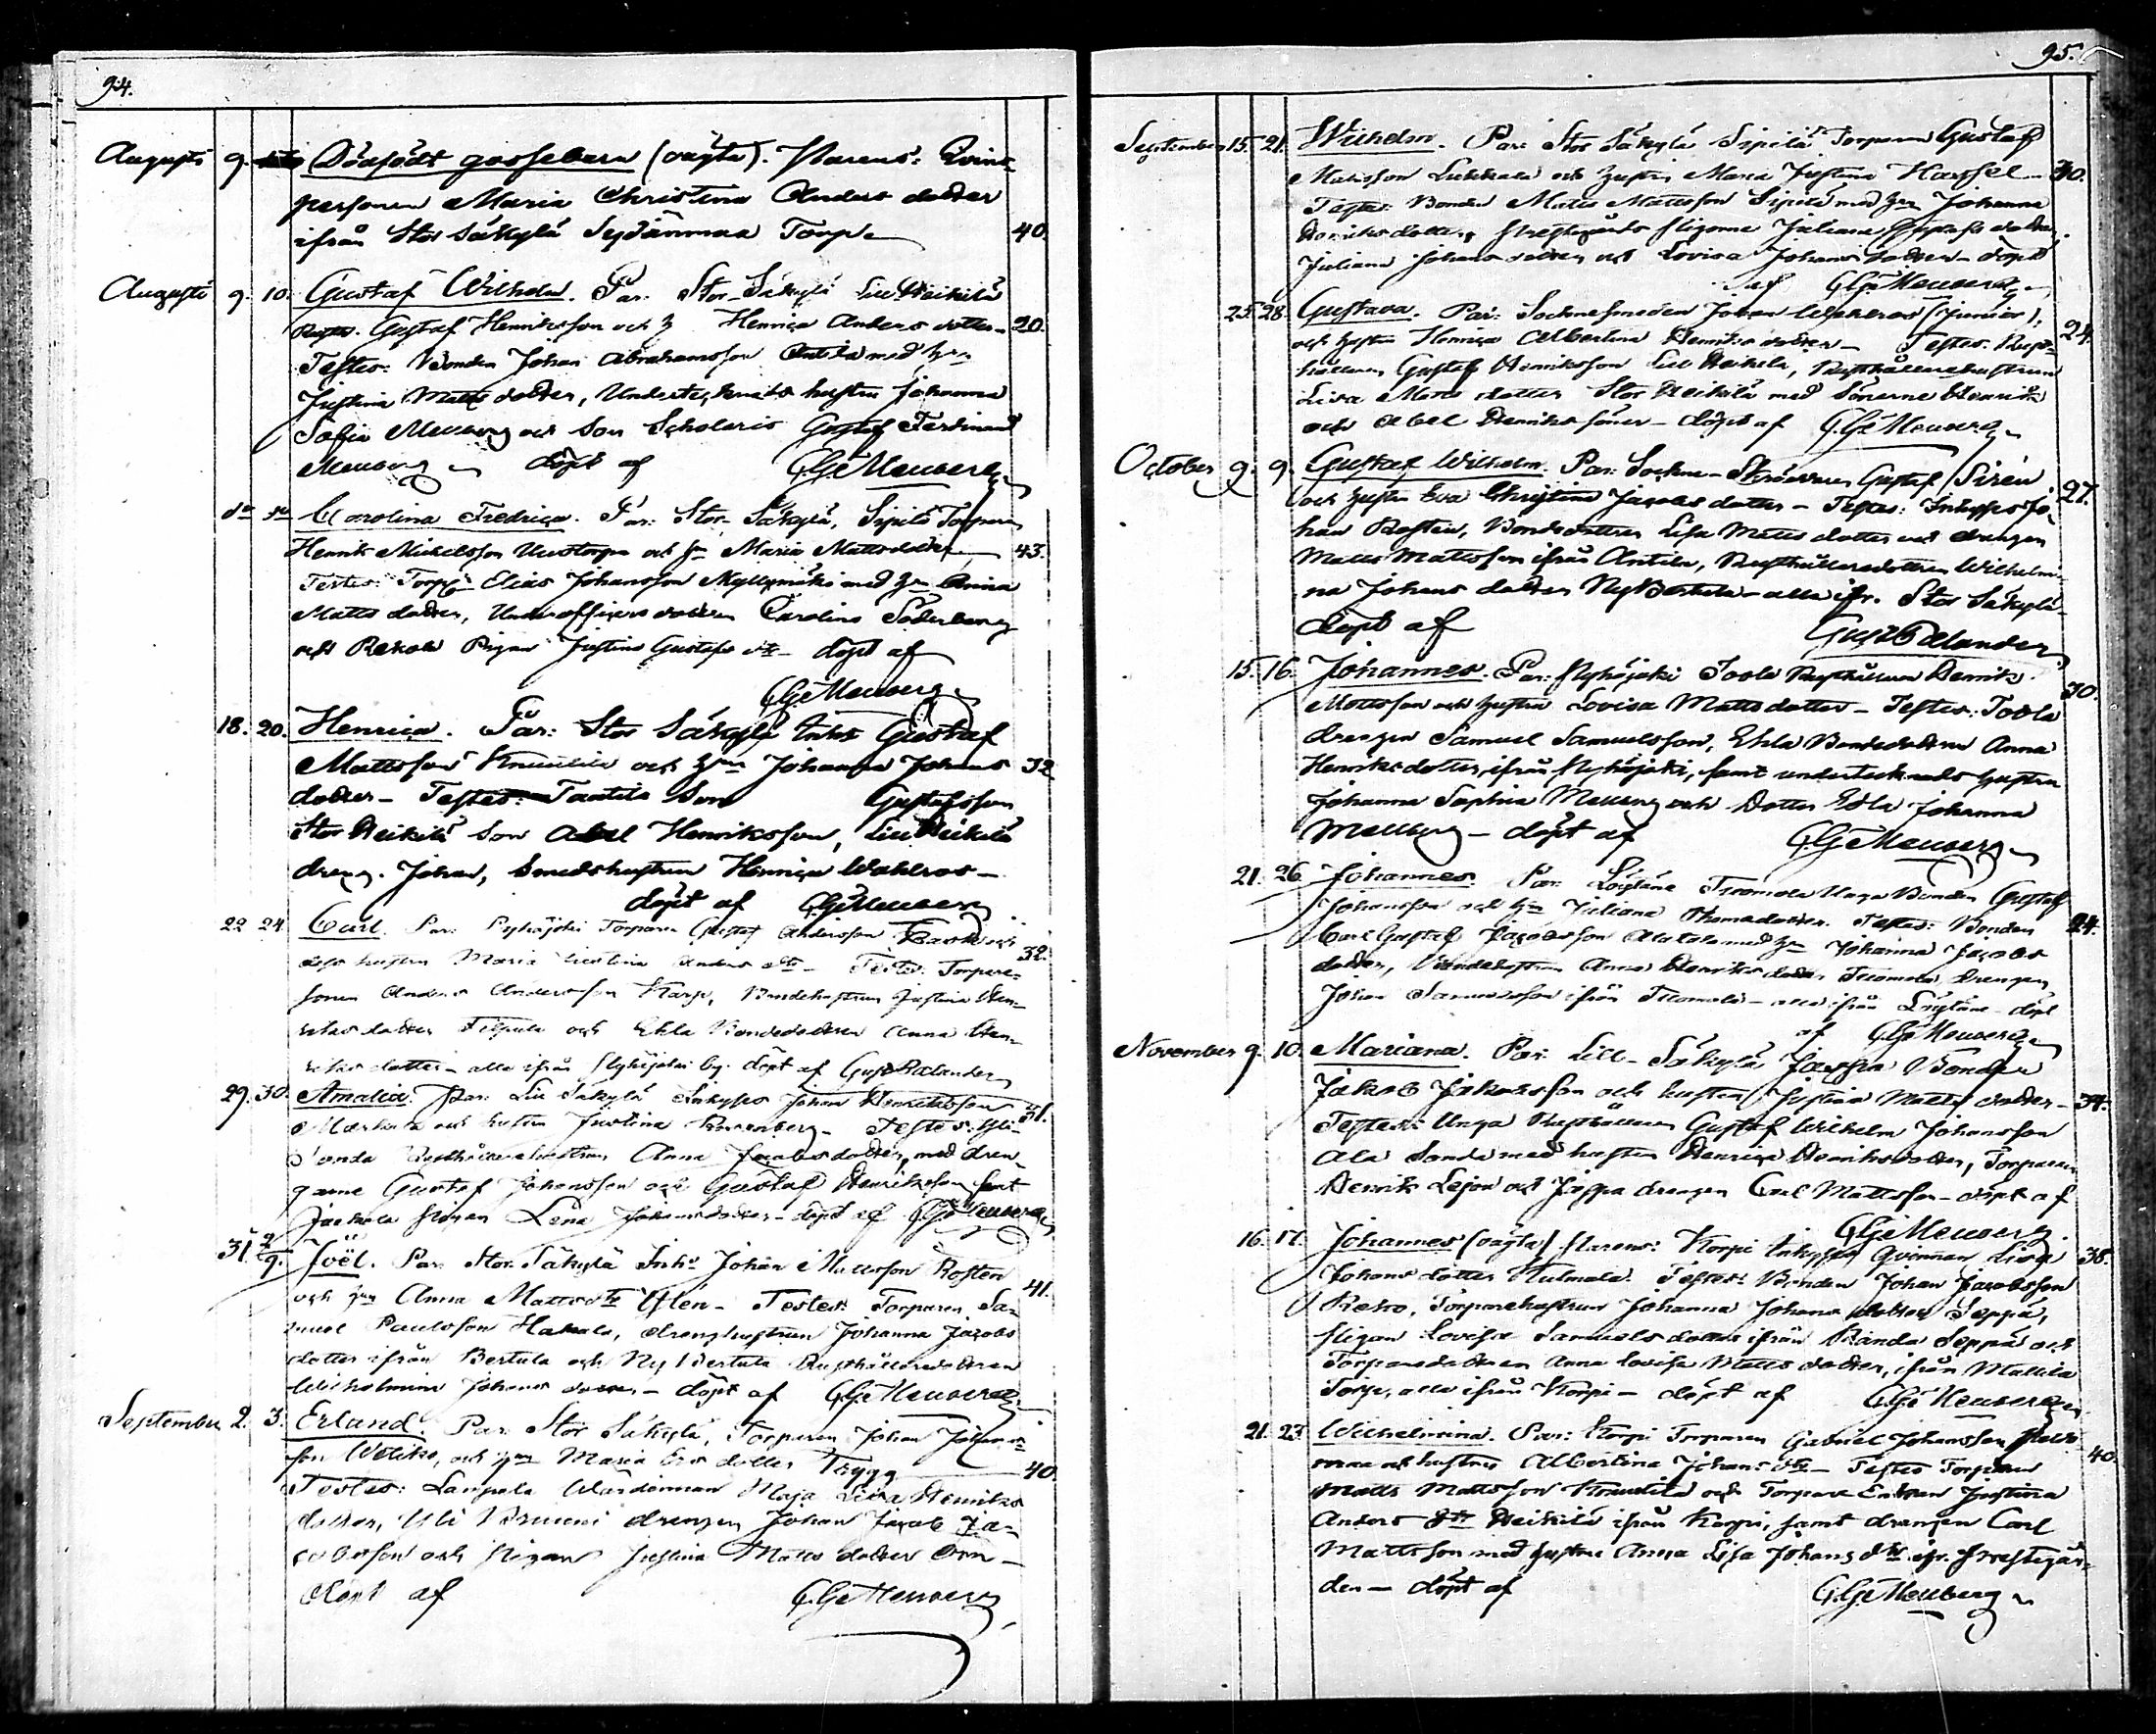 94.
Augusti 9. Dödfödt gossebarn (oägta). Parens: Qvins-
personen Maria Christina Anders dotter
ifrån Stor Säkylä Sydänmaa Torp 40.
Augusti 9. 10. Gustaf Wilhelm. Par: Stor-Säkylä Lill Heikilä
Gustaf Henriksson och Henrica Anders dotter 20.
Testes: Bonden Johan Abrahamsson Antila med hu
Justina Matts dotter, Undertecknads hustru Johanna
Sofia Meuberg och Son Scholaris Gustaf Ferdinand
Meuberg döpt af G.G. Meuberg
do do Carolina Fredrica. Par: Stor-Säkylä, Sipilä Torparen
Henrik Michelsson och Maria Mattsdotter 43.
Testes: Torp. Elias Johansson Myllymäki med hu Anna
Matts dotter, Underofficers dottern Carolina Söderberg
och Pigan Justina Gustafs dr döpt af
G.G. Meuberg
18. 20. Henrica. Par: Stor Säkylä Inhs Gustaf
Mattsson Knuutila och hu Johanna Johans 32
dotter – Testes: Tantila Son Gustafsson
Stor Heikilä Son Abel Henriksson, Lill Heikilä
dreng. Johan, Smedshustrun Henrica Wahlros –
döpt af G.G. Meuberg
22 24 Carl. Par: Pyhäjoki Torparen Gustaf Andersson
hustru Maria Anders dr – Testes: Torpare- 32.
sonen Anders Andersson Karp, Bondehustrun Justina Hen-
riks dotter och Ehla Bondedottren Anna Hen-
riks dotter – alla ifrån Pyhäjoki by. döpt af Gust Palander
29. 30. Amalia. Par: Lill Säkylä Inhyses Johan Henriksson
och hustru Justina – Testes: Yli- 31.
Sonda Rusthållarehustrun Anna Jacobs dotter, med dren-
garne Gustaf Johansson och Gustaf Henriksson samt
pigan Lena Johansdotter – döpt af G.G. Meuberg
31. 2/9. Joël. Par: Stor Säkylä Inhs Johan Mattsson Rosten
och hu Anna Matts dr Ylén – Testes: Torparen Sa- 41.
muel Paulsson Hakala, drenghustrun Johanna Jacobs
dotter ifrån Bertula och Ny Bertula Rusthållaredottren
Wilhelmina Johans dotter – döpt af G.G. Meuberg
September 2. 3. Erland. Par: Stor Säkylä, Torparen Johan Johans-
son och hu Maria dotter Trygg 40.
Testes: Lampala Wärdinnan Maja Lisa Henriks
dotter, Yli drengen Johan Jacob Ja-
cobsson och Pigan Justina Matts dotter
döpt af G.G. Meuberg
95.
September 15. 21. Wilhelm. Par: Stor Säkylä Sipilä Torparen Gustaf
Matsson och hustru Maria Justina 30.
Testes: Bonden Matts Mattsson Sipilä med hu Johanna
Henriks dotter, Prestgårds pigorne Juliana Gustafs dotter,
Juliana Johans dotter och Lovisa Johans dotter – döpt
af G.G. Meuberg
25. 28. Gustava. Par: Socknesmeden Johan Wahlros (Junior),
och hustru Henrica Albertina Henriks dotter – Testes: Rust- 24.
hållaren Gustaf Henriksson Lill Heikila, Rusthållarehustrun
Lisa Matts dotter Stor Heikilä med Sönerne Henrik
och Abel Henriks söner – döpt af G.G. Meuberg
October 9. 9. Gustaf Wilhelm. Par: Sockne-Skräddaren Gustaf Sirén
och hustru Eva Christina Jacobs dotter – Testes: Inhyses Jo- 27.
han Rosten, Bondedottren Lisa Matts dotter och drengen
Matts Mattsson ifrån Antila, Rusthållaredottren Wilhelmi-
na Johans dotter Ny Bertula – alla ifr. Stor Säkylä –
döpt af Gust Palander
15. 16. Johannes. Par: Pyhäjoki Isola Rusthållaren Henrik
Mattsson och hustru Lovisa Matts dotter – Testes: Isola 30.
drengen Samuel Samuelsson, Ehla Bondedottren Anna
Henriks dotter, ifrån Pyhäjoki, samt undertecknads hustru
Johanna Sophia Meuberg och Dotter Edla Johanna
Meuberg – döpt af G.G. Meuberg
21. 26. Johannes. Par: Löytäne Tuomola Unga Bonden Gustaf
Johansson och hu Juliana Thomasdotter. Testes: Bonden 24.
Carl Gustaf Jacobsson Alatalo med hu Johanna Jacobs
dotter, Bondehustrun Anna Henriks dotter Tuomola, drengen
Johan Samuelsson ifrån Tuomola – alla ifrån Löytäne – döpt
af G.G. Meuberg
November 9. 10. Mariana. Par: Lill-Säkylä Jaappa Bonden
Jakob Jakobsson och hustru Justina Matts dotter – 34.
Testes: Unga Rusthållaren Gustaf Wilhelm Johansson
Ala Sonda med hustru Henrica Henriksdotter, Torparen
Henrik Lejon och Jappa drengen Carl Mattsson – döpt af
G.G. Meuberg
16. 17. Johannes (oägta) Parens: Korpi Inhyses Qvinnan Lisa 38.
Johans dotter Huhmala. Testes: Bonden Johan Jacobsson
Torparehustrun Johanna Johans dotter Seppä,
Pigan Lovisa Samuels dotter ifrån Seppä och
Torparedottren Anna Lovisa Matts dotter, ifrån Mattila
Torp, alla ifrån Korpi – döpt af G.G. Meuberg
21. 23. Wilhelmina. Par: Korpi Torparen Gabriel Johansson
och hustru Albertina Johans dr – Testes Torparen 40.
Matts Mattsson Knuutila och Torpare Enkan Justina
Anders dtr Heikilä ifrån Korpi, samt drengen Carl
Mattsson med hustru Anna Lisa Johans dtr ifr. Prestegår-
den – döpt af G.G. Meuberg